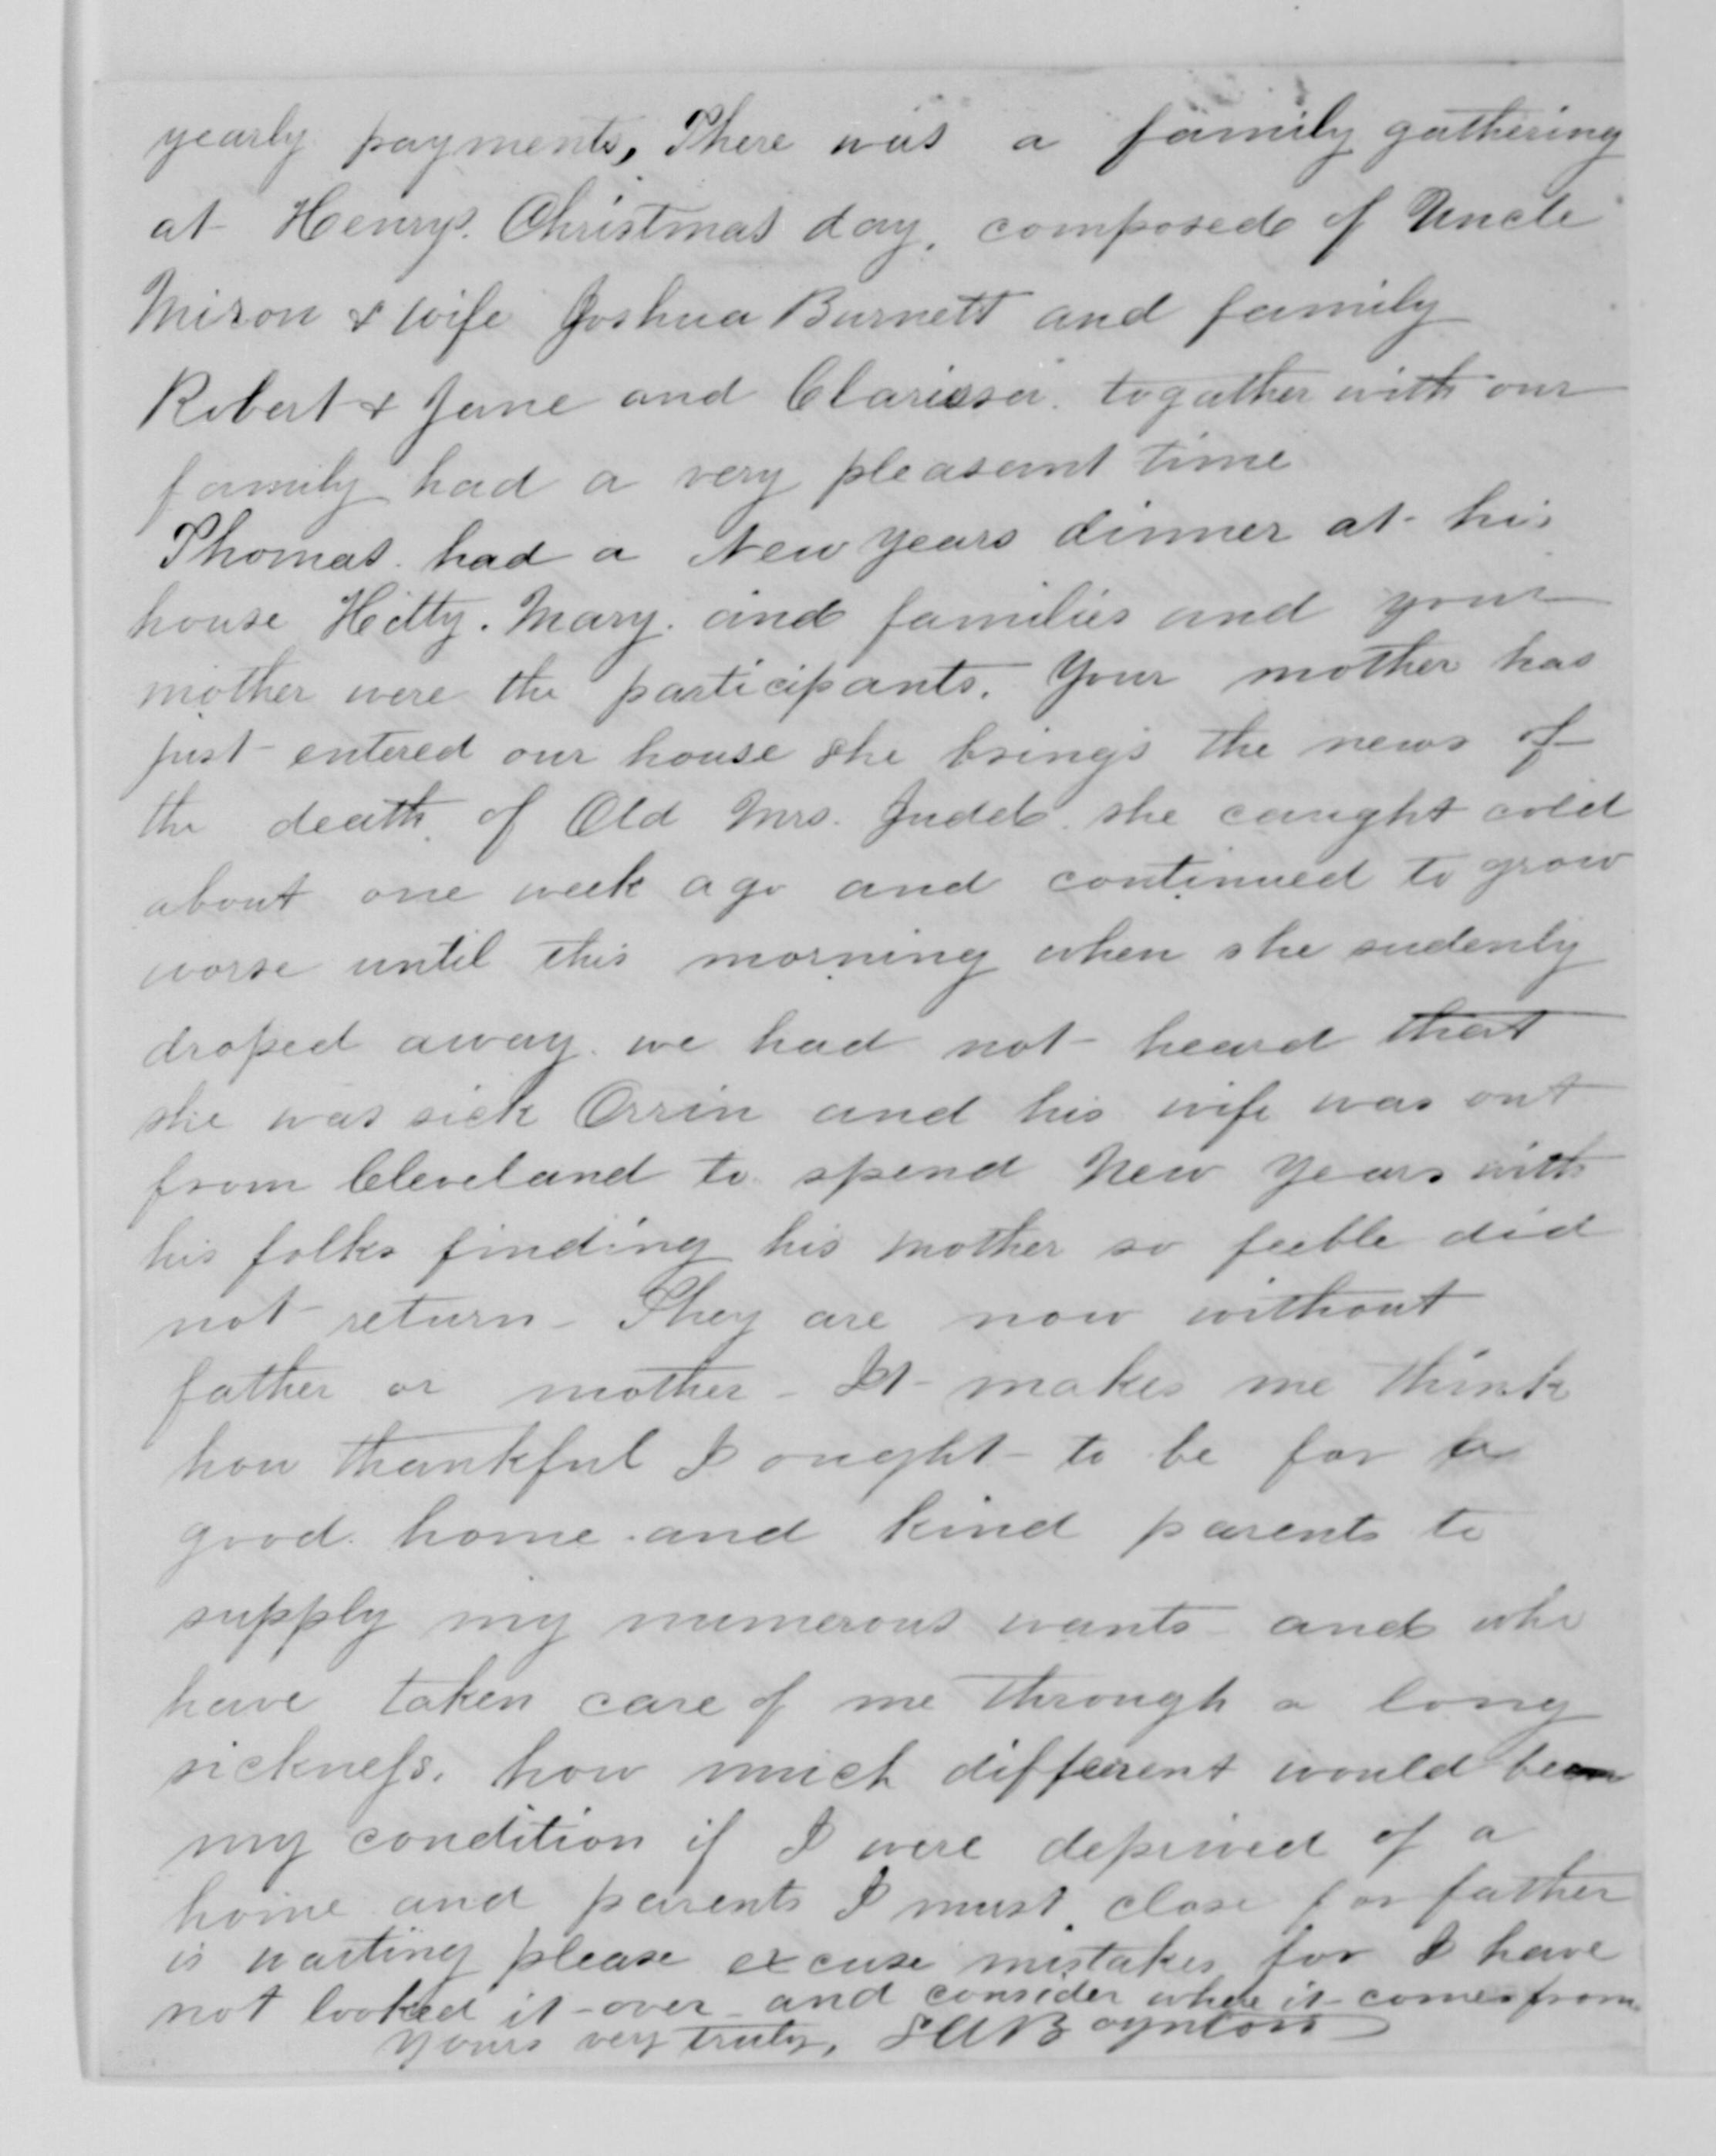 yearly payments, There was a family gathering
at Henrys. Christmas day, composed of Uncle
& wife Joshua Burnett and family
Robert & Jane and Clarissa. togather with our
family had a very pleasant time
Thomas. had a New years dinner at his
house Hitty. Mary. and families and your
mother were the participants. Your mother has
just entered our house she brings the news of
the death of Old Mrs. Judd. she caught cold
about one week ago and continued to grow
worse until this morning when she sudenly
droped away. we had not heard that
she was sick Orrin and his wife was out
from Cleveland to spend New Years with
his folks finding his mother so feeble did
not return – They are now without
father or mother – It makes me think
how thankful I ought to be for a
good home and kind parents to
supply my numerous wants and who
have taken care of me through a long
sickneſs. how much different would be
my condition if I were deprived of a
home and parents I must close for father
is waiting please excuse mistakes for I have
not looked it over and consider where it comes from
Yours very truly, Boynton